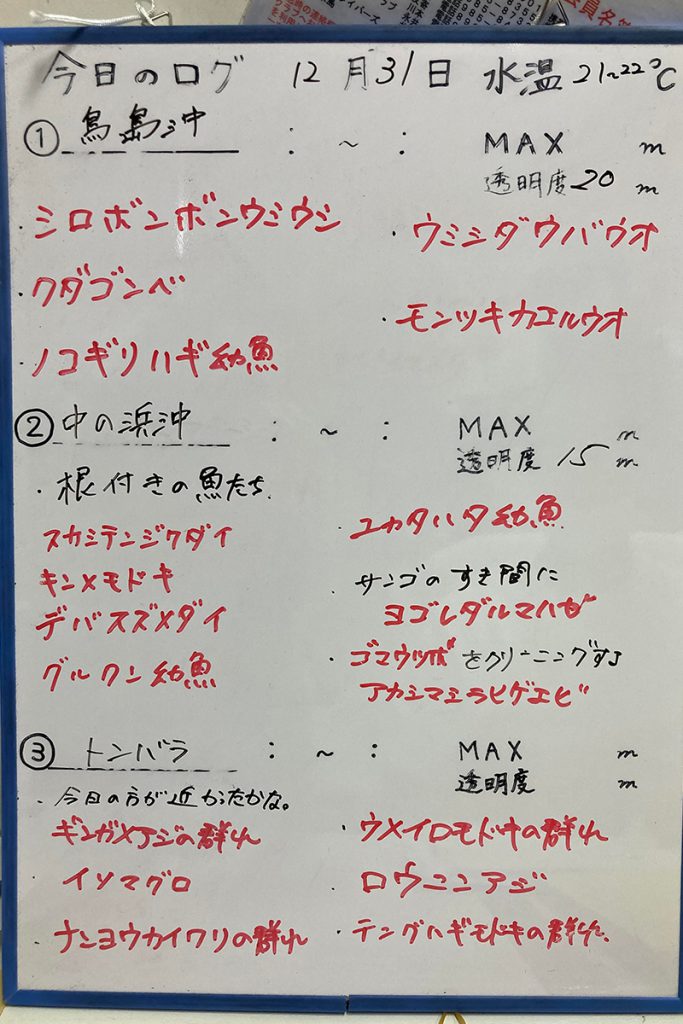 今日のログ 12月31日 水温 21~22℃
① 鳥島沖 : ~ : MAX m
透明度 20 m
・シロボンボンウミウシ
・ウミシダウバウオ
・クダゴンベ
・モンツキカエルウオ
・ノコギリハギ幼魚
② 中の浜沖 : ~ : MAX m
透明度 15 m
・根付きの魚たち
スカシテンジクダイ
キンメモドキ
デバスズメダイ
グルクン幼魚
・ユカタハタ幼魚
・サンゴのすき間に
ヨゴレダルマハゼ
・ゴマウツボをクリーニングする
アカシマシラヒゲエビ
③ トンバラ : ~ : MAX m
透明度 m
・今日の方が近かったかな。
ギンガメアジの群れ
・ウメイロモドキの群れ
・イソマグロ
・ロウニンアジ
・ナンヨウカイワリの群れ
・テングハギモドキの群れ